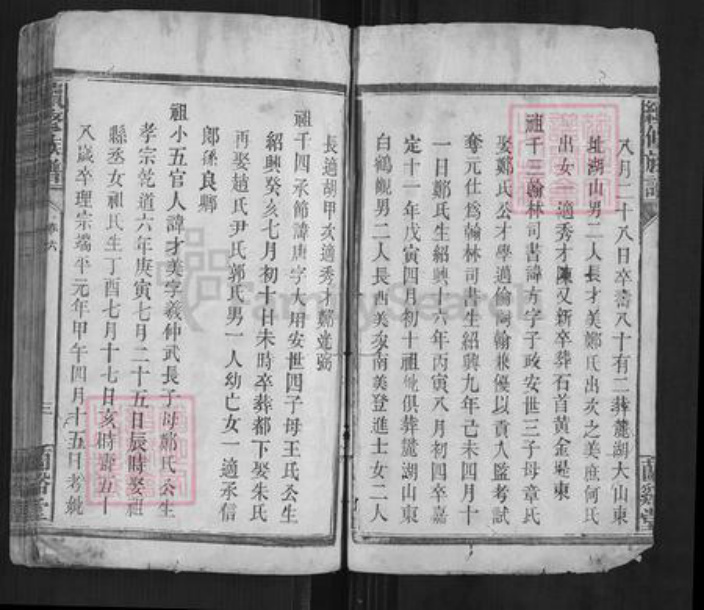 八月二十八日卒壽八十有二葬麓湖大山東
址湖山男二人長才美鄭氏出次之美庶何氏
出女一適秀才陳又新卒葬石首黃金堤東
祖千三翰林司書諱方字子政安世三子母章氏
娶鄭氏公才學邁倫詞翰兼優以貢入監考試
奪元仕爲翰林司書生紹興九年己未四月十
一日鄭氏生紹興十六年丙寅八月初四卒嘉
定十一年戊寅四月初十祖妣俱葬麓湖山東
白鶴觀男二人長西美次南美登進士女二人
長適胡甲次適秀才鄭連弼
祖千四承節諱唐字大用安世四子母王氏公生
紹興癸亥七月初十日未時卒葬都下娶朱氏
再娶趙氏尹氏郭氏男一人幼亡女一適承信
郎孫良驌
祖小五官人諱才美字義仲武長子母鄭氏公生
孝宗乾道六年庚寅七月二十五日辰時娶祖
縣丞女祖氏生丁酉七月十七日亥時壽五十
八歲卒理宗端平元年甲午四月十五日考妣
續修族譜
卷六
三
蘭谿堂
續修族譜
蘭谿堂
FamilySearch